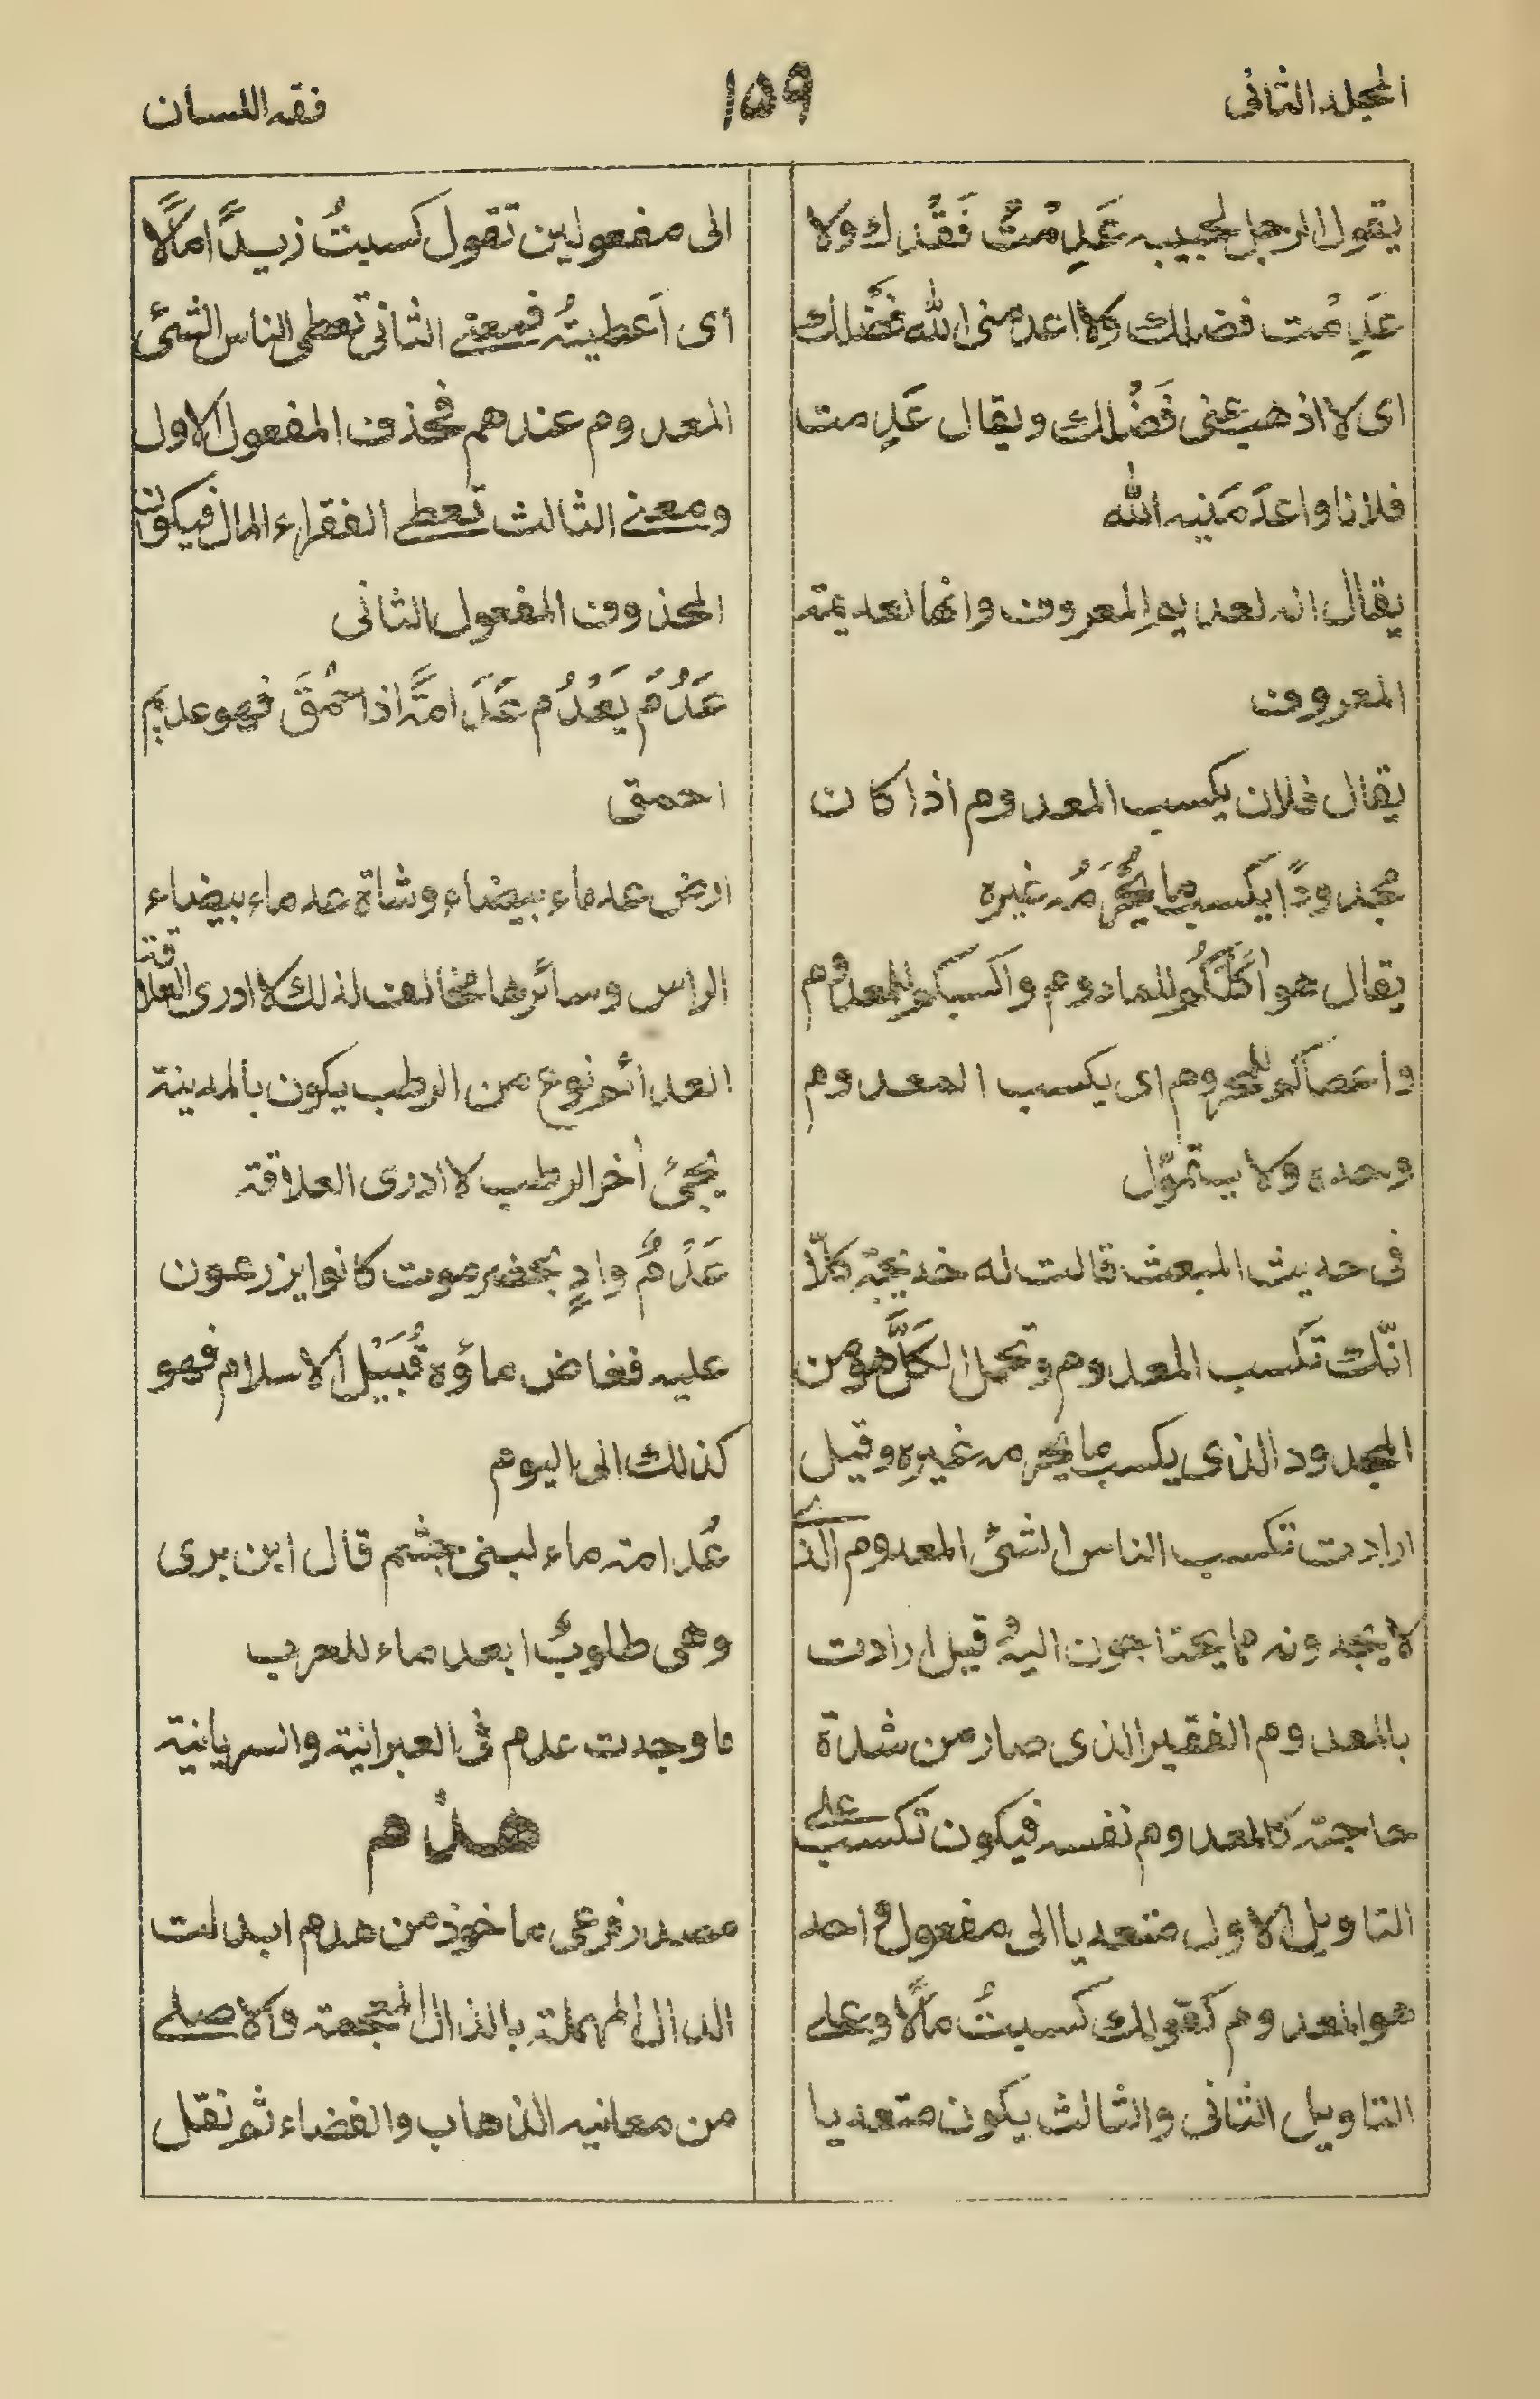 المجلد الثانى
١٥٩
فقه اللسان
يقول الرجل لحبيبه عَدِمْتُ فَقْدَك ولا
عَدِمْت فضلك ولا اعدمنى الله فَضْلك
اى لا اذهب عنى فَضْلك ويقال عَدِمت
فلانا واعدَمَنِيه الله
يقال انه لعديم المعروف وانها لعديمة
المعروف
يقال فلان يكسب المعدوم اذا كان
مجدودًا يكسب ما يُحْرَمُه غيره
يقال هو آكَلُكُم للمادوم واكسبكم للمعدوم
واعصاكم للمحروم اى يكسب المعدوم
وحده ولا يتموّل
فى حديث المبعث قالت له خديجة كلّا
انّك تكسب المعدوم وتحمل الكَلَّ هو من
المجدود الذى يكسب ما يحرمه غيره وقيل
ارادت تكسب الناس الشئ المعدوم الذى
لا يجدونه مما يحتاجون اليه وقيل ارادت
بالمعدوم الفقير الذى صار من شدة
حاجته كالمعدوم نفسه فيكون تكسب على
التاويل الاول متعديا الى مفعول واحد
هو المعدوم كقولك كسبتُ مالًا وعلى
التاويل الثانى والثالث يكون متعديا
الى مفعولين تقول كسبتُ زيدًا مالًا
اى اَعطيتُه فمعنى الثانى تعطى الناس الشئ
المعدوم عندهم فحذف المفعول الاول
ومعنى الثالث تعطى الفقراء المال فيكون
المحذوف المفعول الثانى
عَدُمَ يَعْدُم عَدَامَةً اذا حَمُقَ فهو عديم
احمق
ارض عدماء بيضاء وشاة عدماء بيضاء
الراس وسائرها مخالف لذلك لا ادرى العلاقة
العدائم نوع من الرطب يكون بالمدينة
يجئ أخر الرطب لا ادرى العلاقة
عَدَمٌ وادٍ بحضرموت كانوا يزرعون
عليه فغاض ماؤه قُبَيْل الاسلام فهو
كذلك الى اليوم
عُدامة ماء لبنى جشم قال ابن برى
وهى طلوبٌ ابعد ماء للعرب
ما وجدت عدم فى العبرانية والسريانية
هذم
مصدر فرعى ماخوذ من هدم ابدلت
الدال المهملة بالذال المعجمة والاصلى
من معانيه الذهاب والفضاء ثم نقل